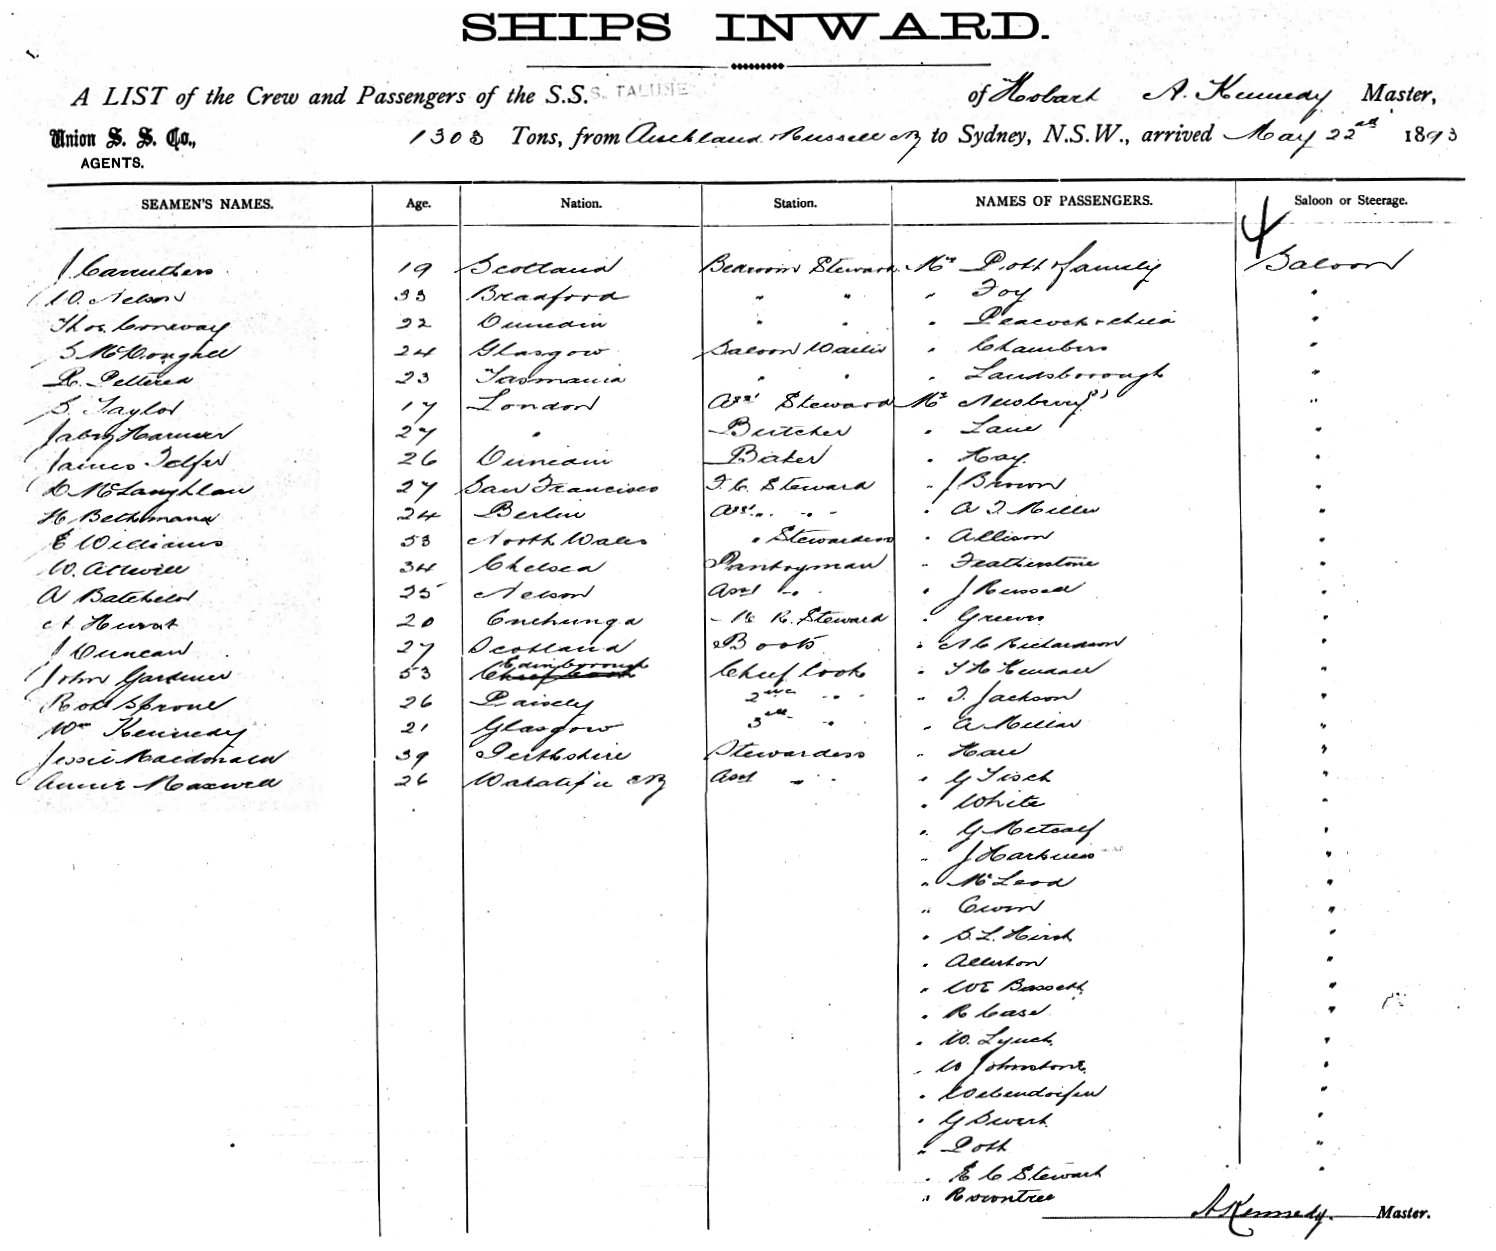 SHIPS INWARD.
A LIST of the Crew and Passengers of the S.S. S. TALUNE of Hobart A. Kennedy Master,
Union S. S. Co., 1303 Tons, from Auckland & Russell NZ to Sydney, N.S.W., arrived May 22nd 1893
AGENTS.
SEAMEN'S NAMES. Age. Nation. Station. NAMES OF PASSENGERS. Saloon or Steerage.
4
J Carruthers 19 Scotland Bedroom Steward Mrs Pott & family Saloon
W. Nelson 33 Bradford " " " Foy "
Thos. Conway 22 Dunedin " " " Peacock & child "
S McDougall 24 Glasgow Saloon Waiter " Chambers "
R. 23 Tasmania " " " Landsborough "
S. Taylor 17 London Asst Steward Mr Newberry "
27 " Butcher " Lane "
James Telfer 26 Dunedin Baker " Hay "
D McLaughlan 27 San Francisco F.C. Steward " J Brown "
H Bethmann 24 Berlin Asst " " " A J Miller "
E Williams 53 North Wales " Stewardess " Allison "
W. Attwill 34 Chelsea Pantryman " Featherstone "
A Batchelor 25 Nelson Asst " " J Russell "
A Hurst 20 Onehunga R. Steward " Greeves "
J Duncan 27 Scotland Boots " Richardson "
John Gardiner 53 Edinborough Chief Cook " "
Robt Sproul 26 Paisely 2nd " " " J. Jackson "
Wm Kennedy 21 Glasgow 3rd " " A Millar "
Jessie Macdonald 39 Perthshire Stewardess " Hall "
Annie Maxwell 26 NZ Asst " " G Tisch "
" White "
" G Metcalf "
" J Harkness "
" McLeod "
" Owen "
" S. L. Hirst "
" Allerton "
" W E Bassett "
" R Case "
" W. Lynch "
" W Johnstone "
" "
" G "
" Pott "
" E C Stewart "
" Rowntree
A Kennedy. Master.